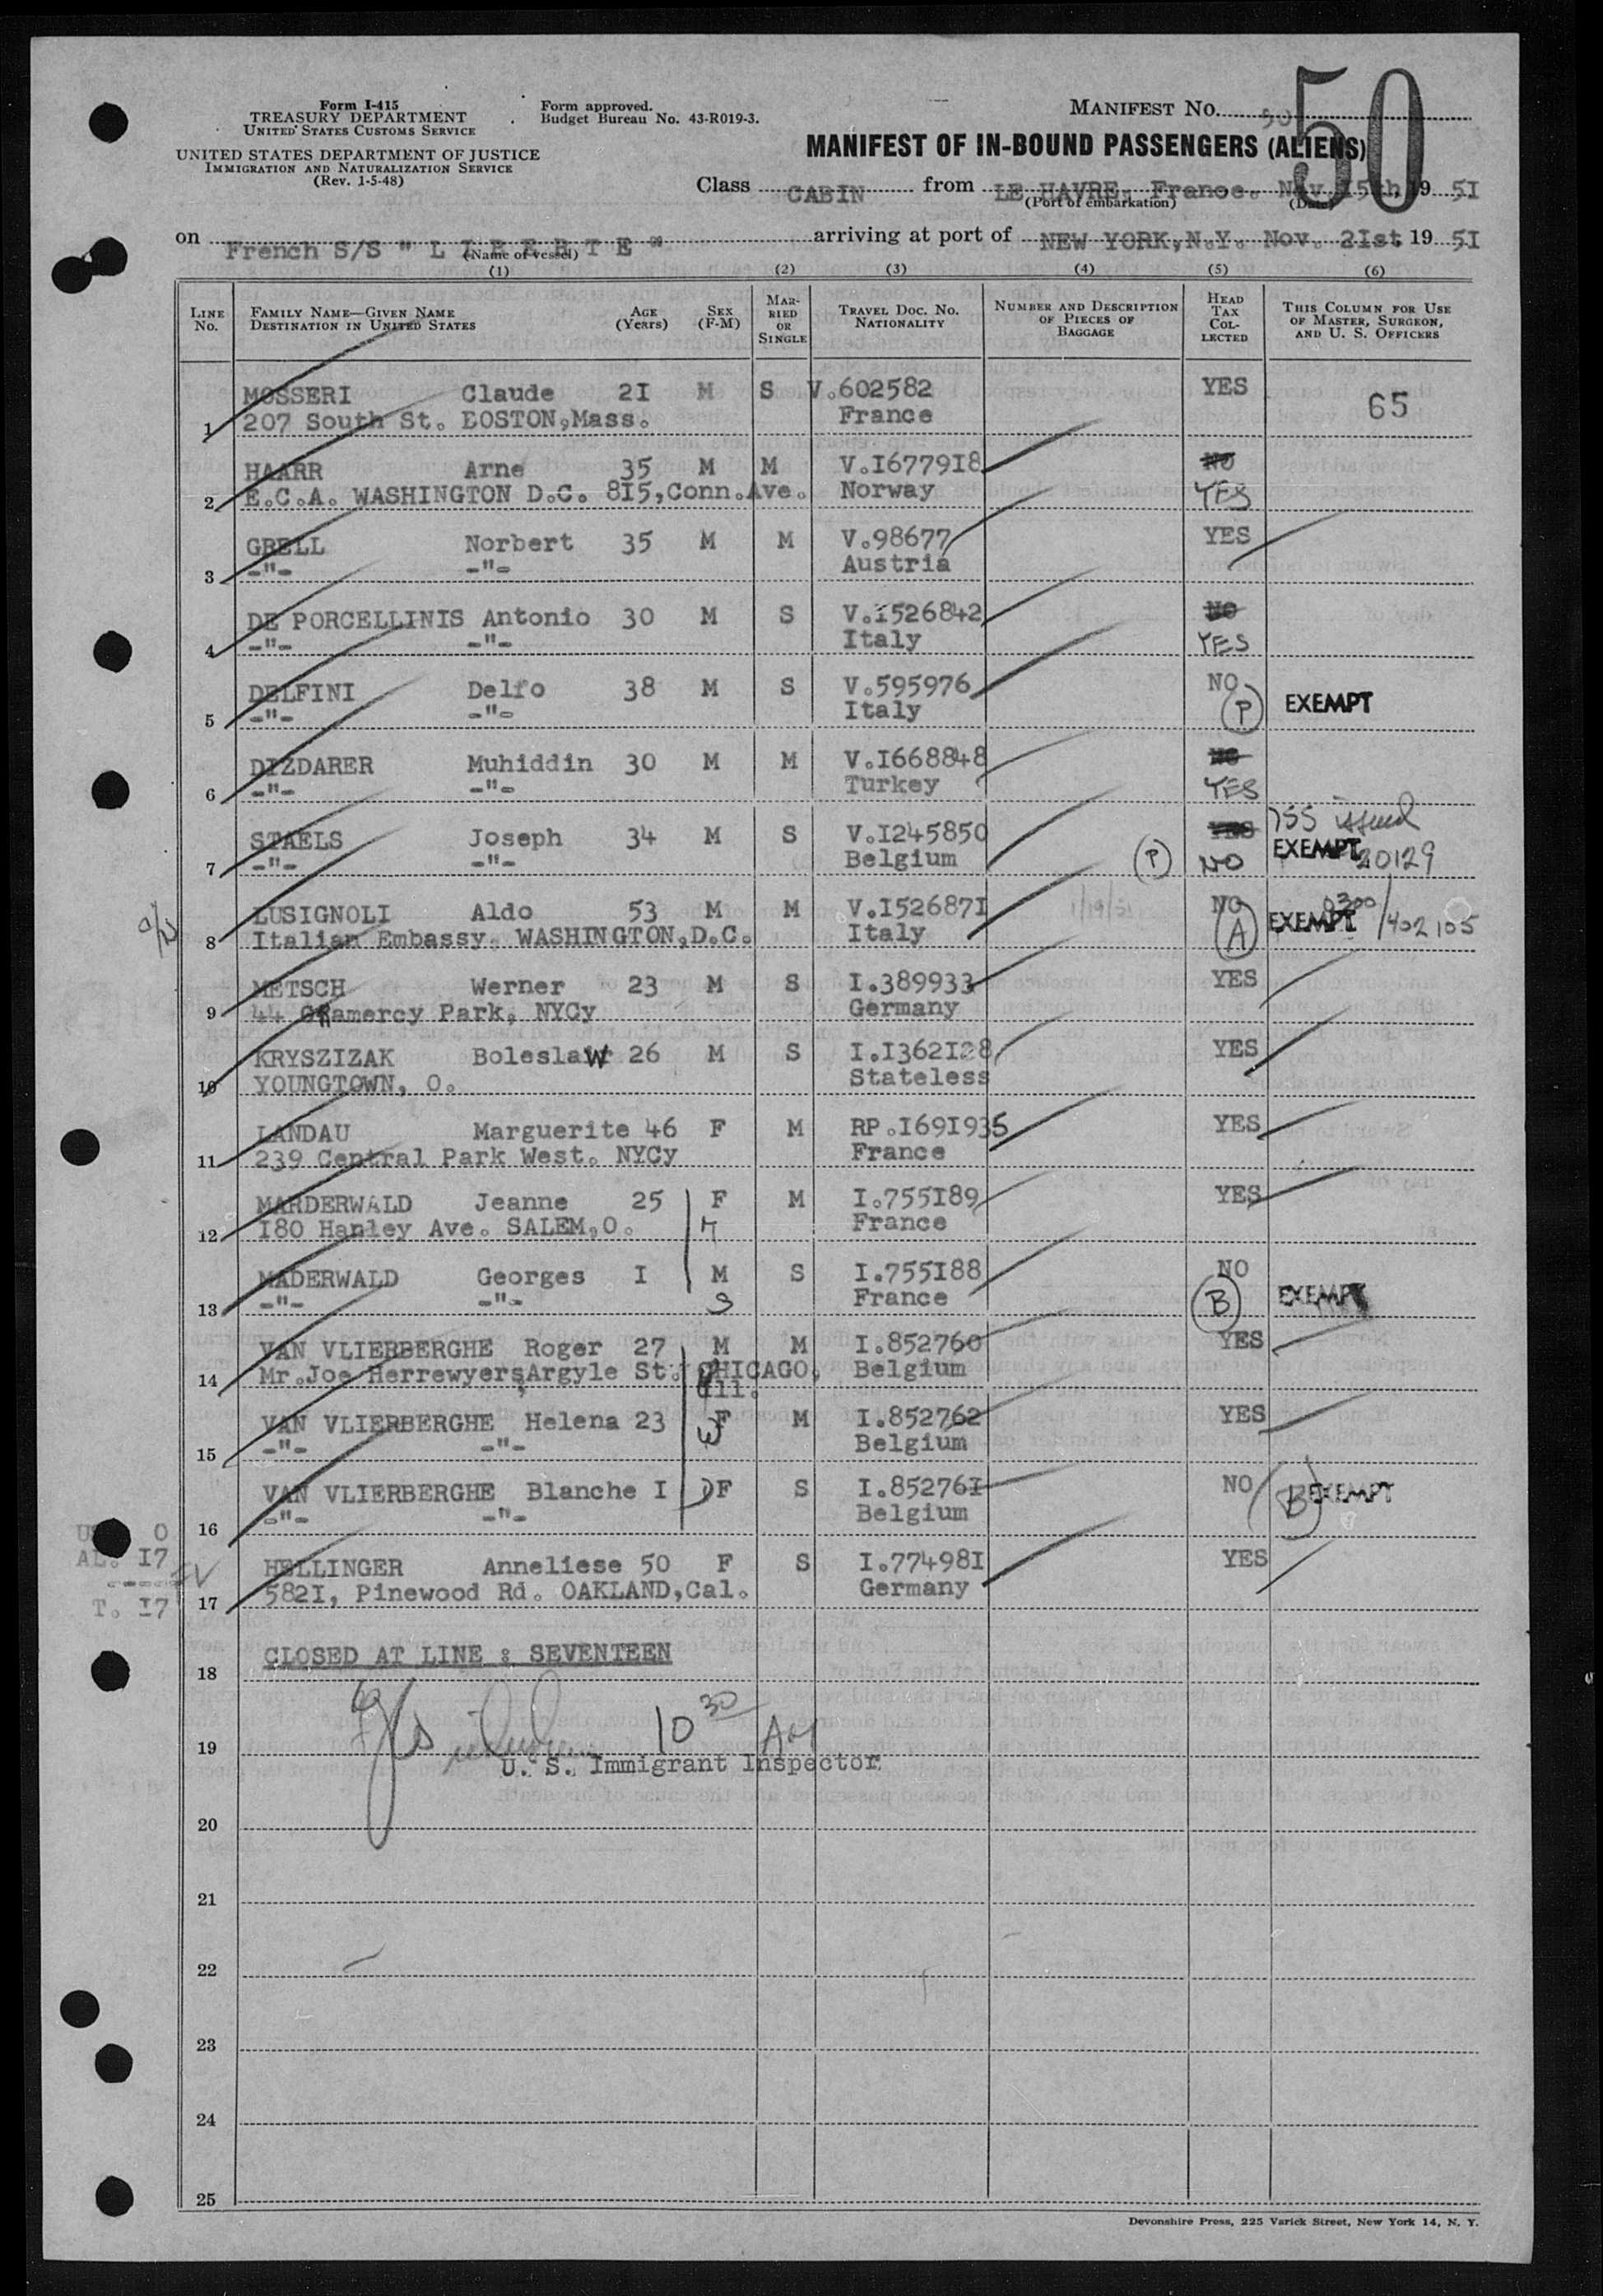 Form I-415
TREASURY DEPARTMENT
UNITED STATES CUSTOMS SERVICE
UNITED STATES DEPARTMENT OF JUSTICE
IMMIGRATION AND NATURALIZATION SERVICE
(Rev. 1-5-48)
Form approved.
Budget Bureau No. 43-R019-3.
MANIFEST No. 50
50
MANIFEST OF IN-BOUND PASSENGERS (ALIENS)
Class CABIN from LE HAVRE, France. Nov. 15th, 19 51
(Port of embarkation) (Date)
on French S/S " L I B E R T E " arriving at port of NEW YORK, N.Y. Nov. 21st, 19 51
(Name of vessel)
(1) (2) (3) (4) (5) (6)
LINE No.
FAMILY NAME—GIVEN NAME DESTINATION IN UNITED STATES
AGE (Years)
SEX (F-M)
MARRIED OR SINGLE
TRAVEL DOC. No. NATIONALITY
NUMBER AND DESCRIPTION OF PIECES OF BAGGAGE
HEAD TAX COLLECTED
THIS COLUMN FOR USE OF MASTER, SURGEON, AND U. S. OFFICERS
MOSSERI Claude 21 M S V.602582 YES 65
1 207 South St. BOSTON,Mass. France
HAARR Arne 35 M M V.1677918 NO
2 E.C.A. WASHINGTON D.C. 815,Conn.Ave. Norway YES
GRELL Norbert 35 M M V.98677 YES
3 -"- -"- Austria
DE PORCELLINIS Antonio 30 M S V.1526842 NO
4 -"- -"- Italy YES
DELFINI Delfo 38 M S V.595976 NO
5 -"- -"- Italy (P) EXEMPT
DIZDARER Muhiddin 30 M M V.1668848 NO
6 -"- -"- Turkey YES
STAELS Joseph 34 M S V.1245850 YES 755 issued
7 -"- -"- Belgium (P) NO EXEMPT 20129
LUSIGNOLI Aldo 53 M M V.1526871 1/19/51 NO 0300
8 Italian Embassy. WASHINGTON,D.C. Italy (A) EXEMPT /402105
METSCH Werner 23 M S I.389933 YES
9 44 GRamercy Park, NYCy Germany
KRYSZIZAK Boleslaw 26 M S I.1362128 YES
10 YOUNGTOWN, O. Stateless
LANDAU Marguerite 46 F M RP.1691935 YES
11 239 Central Park West. NYCy France
MARDERWALD Jeanne 25 F M I.755189 YES
12 180 Hanley Ave. SALEM,O. France
MADERWALD Georges 1 M S I.755188 NO
13 -"- -"- S France (B) EXEMPT
VAN VLIERBERGHE Roger 27 M M I.852760 YES
14 Mr.Joe Herrewyers,Argyle St. CHICAGO, Belgium
Ill.
VAN VLIERBERGHE Helena 23 W F M I.852762 YES
15 -"- -"- Belgium
VAN VLIERBERGHE Blanche 1 D F S I.852761 NO (B) EXEMPT
16 -"- -"- Belgium
US. 0
AL. 17
T. 17
HELLINGER Anneliese 50 F S I.774981 YES
17 5821, Pinewood Rd. OAKLAND,Cal. Germany
CLOSED AT LINE : SEVENTEEN
18
10 30 AM
19
U. S. Immigrant Inspector
20
21
22
23
24
25
Devonshire Press, 225 Varick Street, New York 14, N. Y.